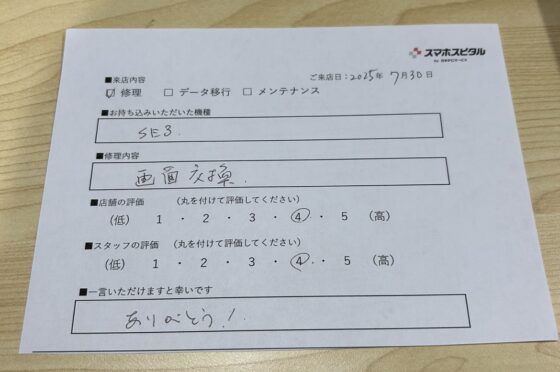 スマホスピタル
■来店内容
ご来店日：2025年 7月30日
☑ 修理 □ データ移行 □ メンテナンス
■お持ち込みいただいた機種
SE3.
■修理内容
画面交換.
■店舗の評価 （丸を付けて評価してください）
（低） 1 ・ 2 ・ 3 ・ ④ ・ 5 （高）
■スタッフの評価 （丸を付けて評価してください）
（低） 1 ・ 2 ・ 3 ・ ④ ・ 5 （高）
■一言いただけますと幸いです
ありがとう！